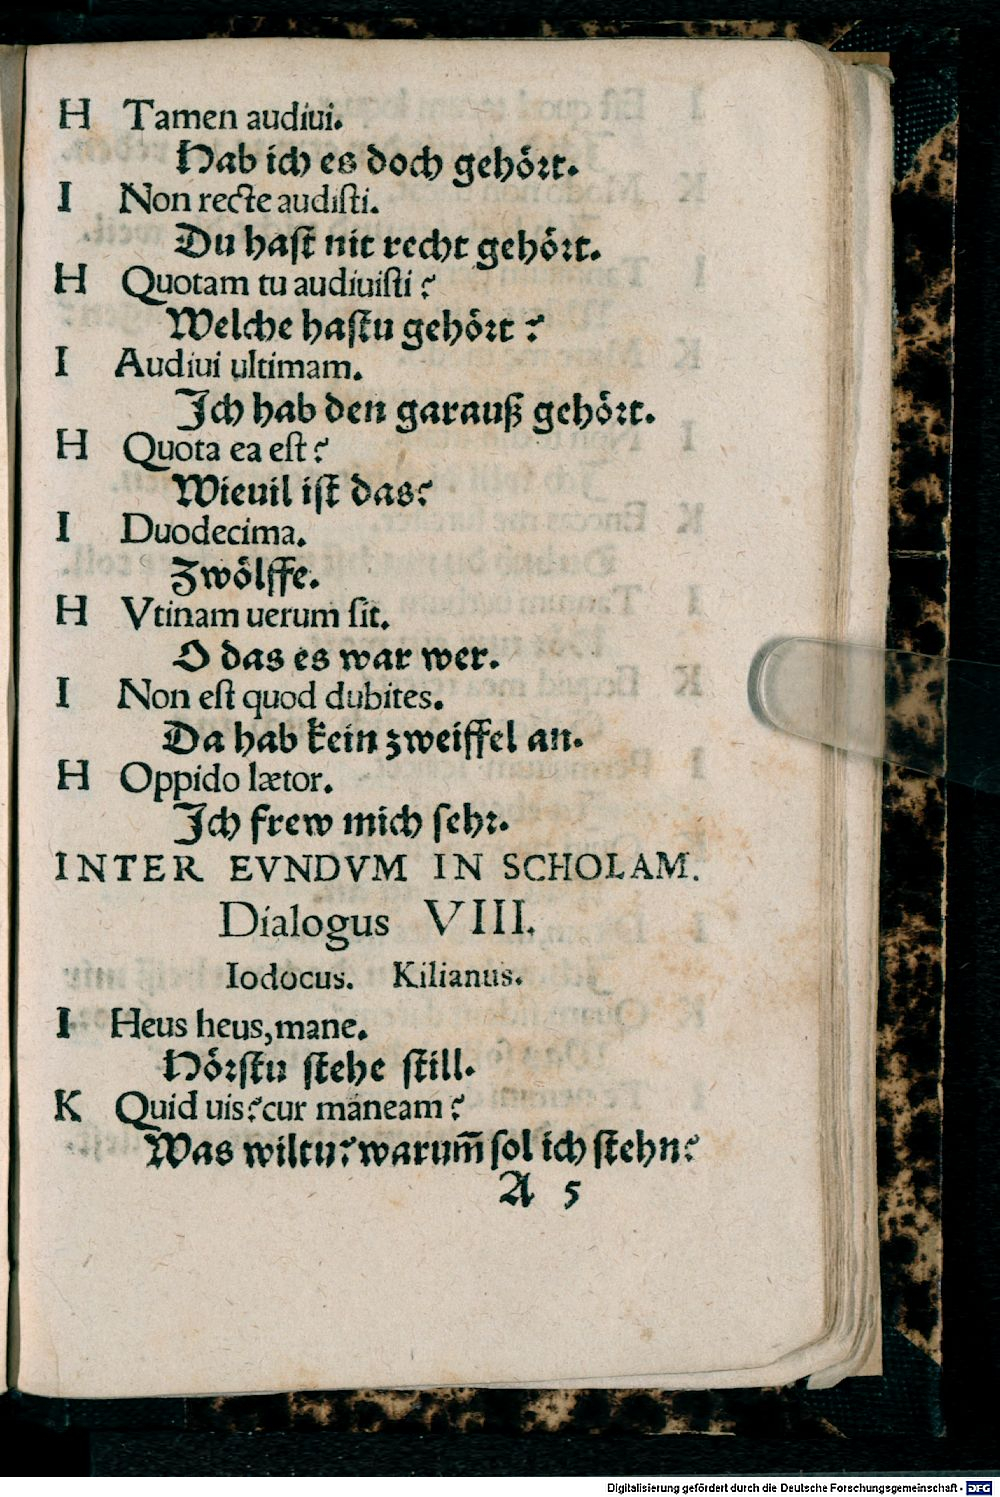 H Tamen audiui.
Hab ich es doch gehört.
I Non recte audisti.
Du hast nit recht gehört.
H Quotam tu audiuisti?
Welche hastu gehört?
I Audiui ultimam.
Ich hab den garauß gehört.
H Quota ea est?
Wieuil ist das?
I Duodecima.
Zwölffe.
H Vtinam uerum sit.
O das es war wer.
I Non est quod dubites.
Da hab kein zweiffel an.
H Oppido lætor.
Ich frew mich sehr.
INTER EVNDVM IN SCHOLAM.
Dialogus VIII.
Iodocus. Kilianus.
I Heus heus, mane.
Hörstu stehe still.
K Quid uis? cur maneam?
Was wiltu? warum̄ sol ich stehn?
A 5
Digitalisierung gefördert durch die Deutsche Forschungsgemeinschaft - DFG